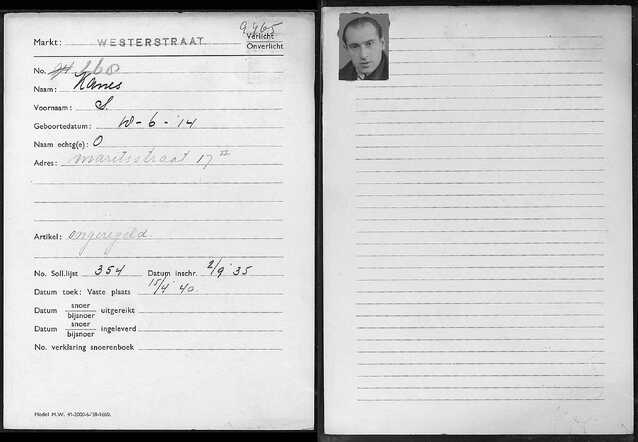 9465
Markt: WESTERSTRAAT
Verlicht
Onverlicht
No.
Naam:
Voornaam: S.
Geboortedatum: 10-6-'14
Naam echtg(e): O
Adres: maritsstraat 17 II
Artikel: ongeregeld
No. Soll.lijst 354 Datum inschr. 2/9 '35
Datum toek: Vaste plaats 15/4 '40.
Datum snoer uitgereikt
bijsnoer
Datum snoer ingeleverd
bijsnoer
No. verklaring snoerenboek
Model M.W. 41-2000-6-'39-1660.